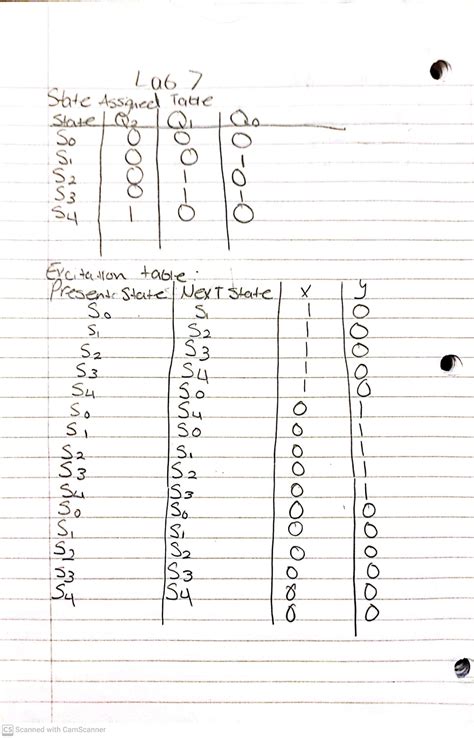 Lab 7
State Assgned Table
State Q2 Q1 Q0
S0 0 0 0
S1 0 0 1
S2 0 1 0
S3 0 1 1
S4 1 0 0
Excitation table:
Present State Next State X y
S0 S1 1 0
S1 S2 1 0
S2 S3 1 0
S3 S4 1 0
S4 S0 1 0
S0 S4 0 1
S1 S0 0 1
S2 S1 0 1
S3 S2 0 1
S4 S3 0 1
S0 S0 0 0
S1 S1 0 0
S2 S2 0 0
S3 S3 0 0
S4 S4 0 0
0 0
CS Scanned with CamScanner